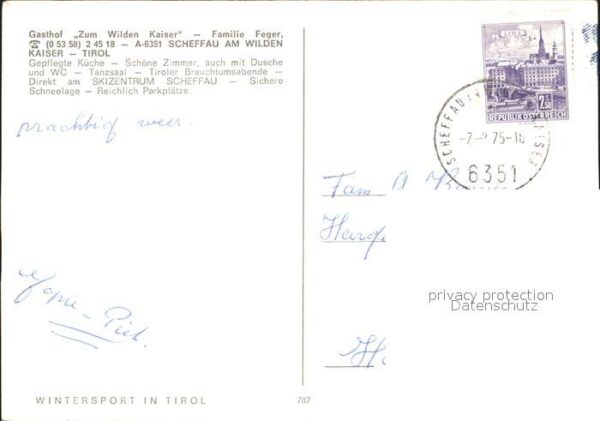 Gasthof „Zum Wilden Kaiser" – Familie Feger,
☎ (0 53 58) 2 45 18 – A-6351 SCHEFFAU AM WILDEN
KAISER – TIROL
Gepflegte Küche – Schöne Zimmer, auch mit Dusche
und WC – Tanzsaal – Tiroler Brauchtumsabende –
Direkt am SKIZENTRUM SCHEFFAU – Sichere
Schneelage – Reichlich Parkplätze
prachtig weer.
Piet.
WINTERSPORT IN TIROL
787
2.50
REPUBLIK ÖSTERREICH
SCHEFFAU KAISER
75-18
6351
Fam A
privacy protection
Datenschutz